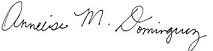 Anneise M. Dominguez